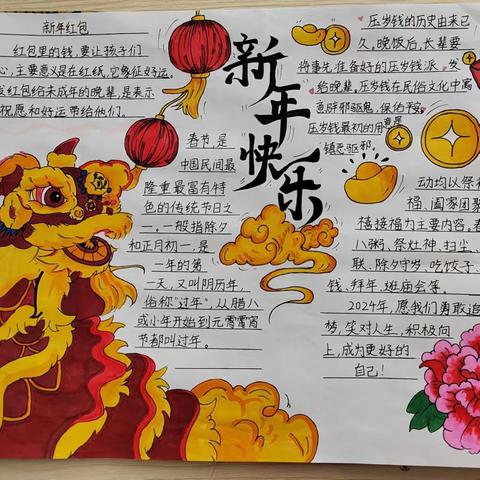 新年红包
红包里的钱,要让孩子们
心,主要意义是在红纸,它象征好运。
发红包给未成年的晚辈,是表示
祝愿和好运带给他们。
新年快乐
压岁钱的历史由来已
久。晚饭后,长辈要
将事先准备好的压岁钱派发
给晚辈,压岁钱在民俗文化中寓
意辟邪驱鬼,保佑平安。
压岁钱最初的用意是
镇恶驱邪。
春节,是
中国民间最
隆重最富有特
色的传统节日之
一,一般指除夕
和正月初一,是
一年的第
一天,又叫阴历年,
俗称“过年”,从腊八
或小年开始到元霄霄
节都叫过年。
动均以祭祀
福、阖家团聚
禧接福为主要内容,春
八粥、祭灶神、扫尘、
联、除夕守岁、吃饺子、
钱、拜年、逛庙会等。
2024年,愿我们勇敢追
梦,笑对人生,积极向
上,成为更好的
自己!